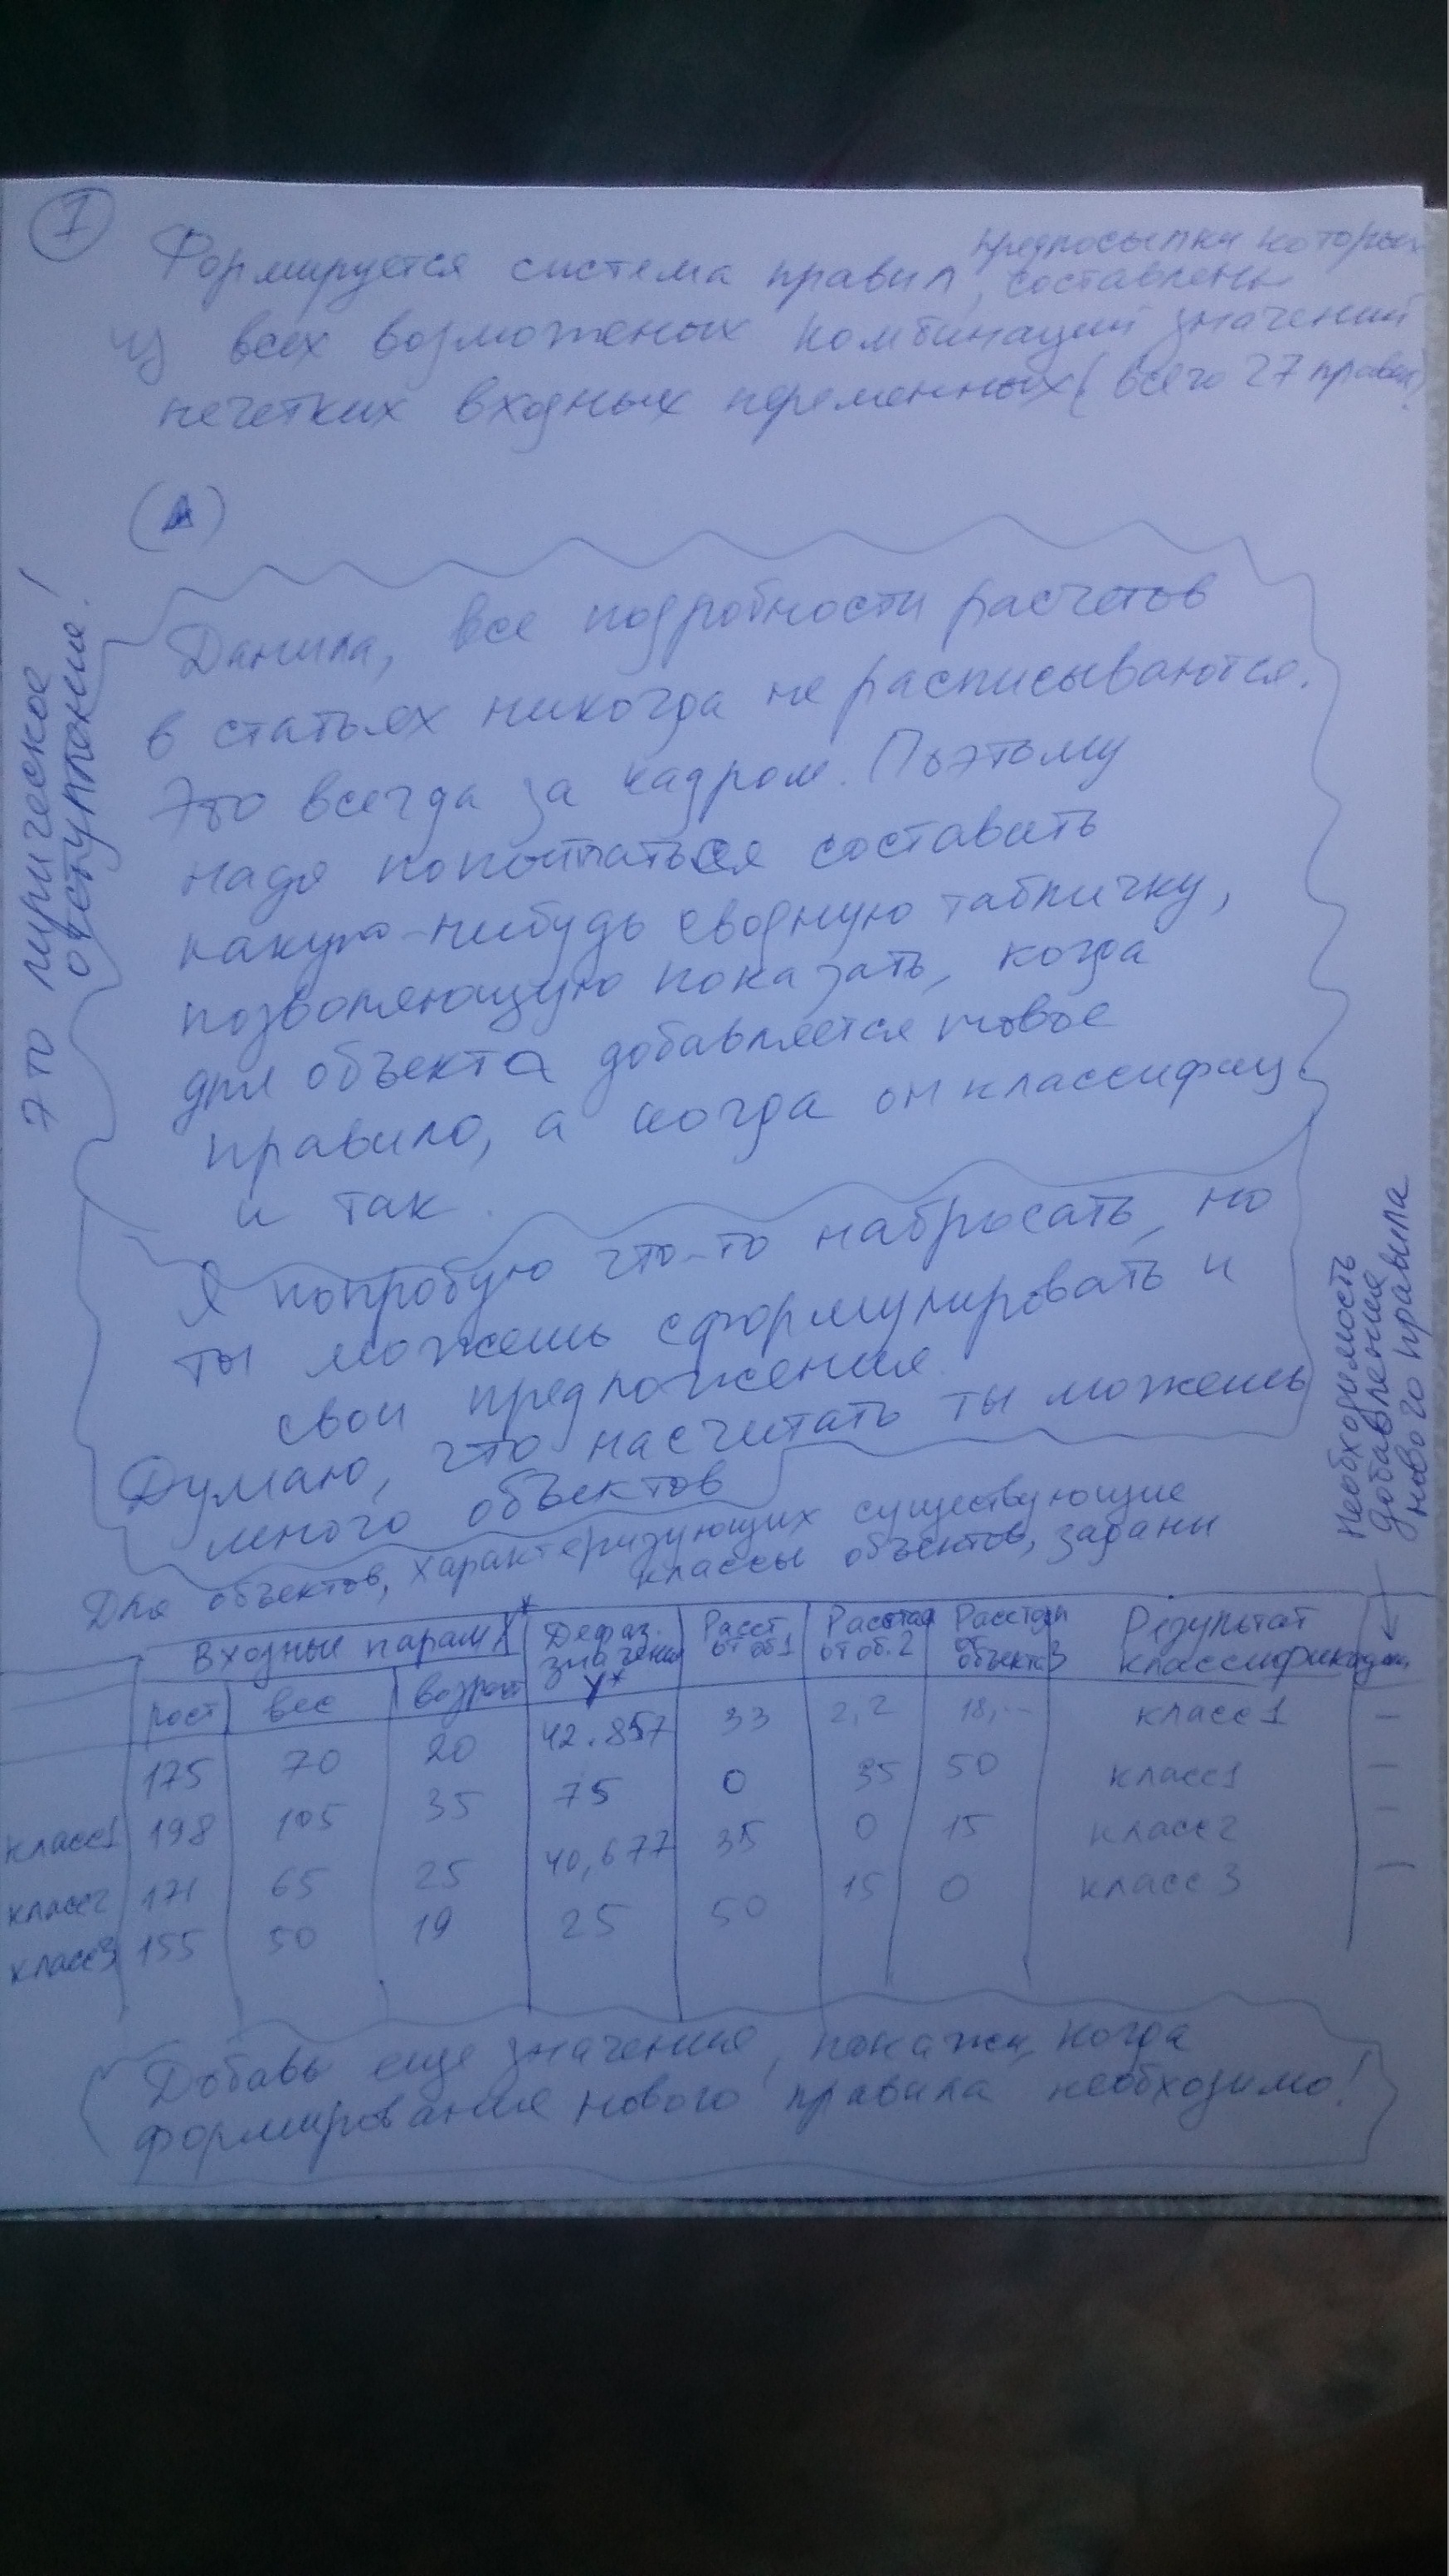 1
предпосылки которых
Формируется система правил, составлены
из всех возможеных комбинаций значений
нечетких входных переменных (всего 27 правил)
(А)
Это лирическое
отступление!
Данила, все подробности расчетов
в статьях никогда не расписываются.
Это всегда за кадром. Поэтому
надо попытаться составить
какую-нибудь сводную табличку,
позволяющую показать, когда
для объекта добавляется новое
правило, а когда он классифиц.
и так.
Я попробую что-то набросать, но
ты можешь сформулировать и
свои предложения.
Думаю, что насчитать ты можешь
много объектов
Необходимость
добавления
нового правила
Для объектов, характеризующих существующие
классы объектов, заданы
Входные парам X* Дефаз. значения Y* Расст от об1 Расстоя от об.2 Расстоян от объекта3 Результат классификации
рост вес возраст
175 70 20 42.857 33 2,2 18,-- класс 1 –
класс1 198 105 35 75 0 35 50 класс1 –
класс2 171 65 25 40,677 35 0 15 класс2 –
класс3 155 50 19 25 50 15 0 класс 3 –
Добавь еще значения, покажи, когда
формирование нового правила необходимо!